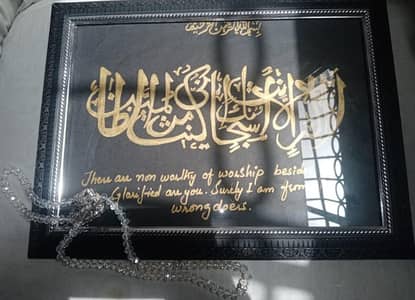 بسم الله الرحمن الرحيم
لا إله إلا أنت سبحانك إني كنت من الظالمين
There are non worthy of worship besid
Glorified are you. Surely I am from
wrongdoers.